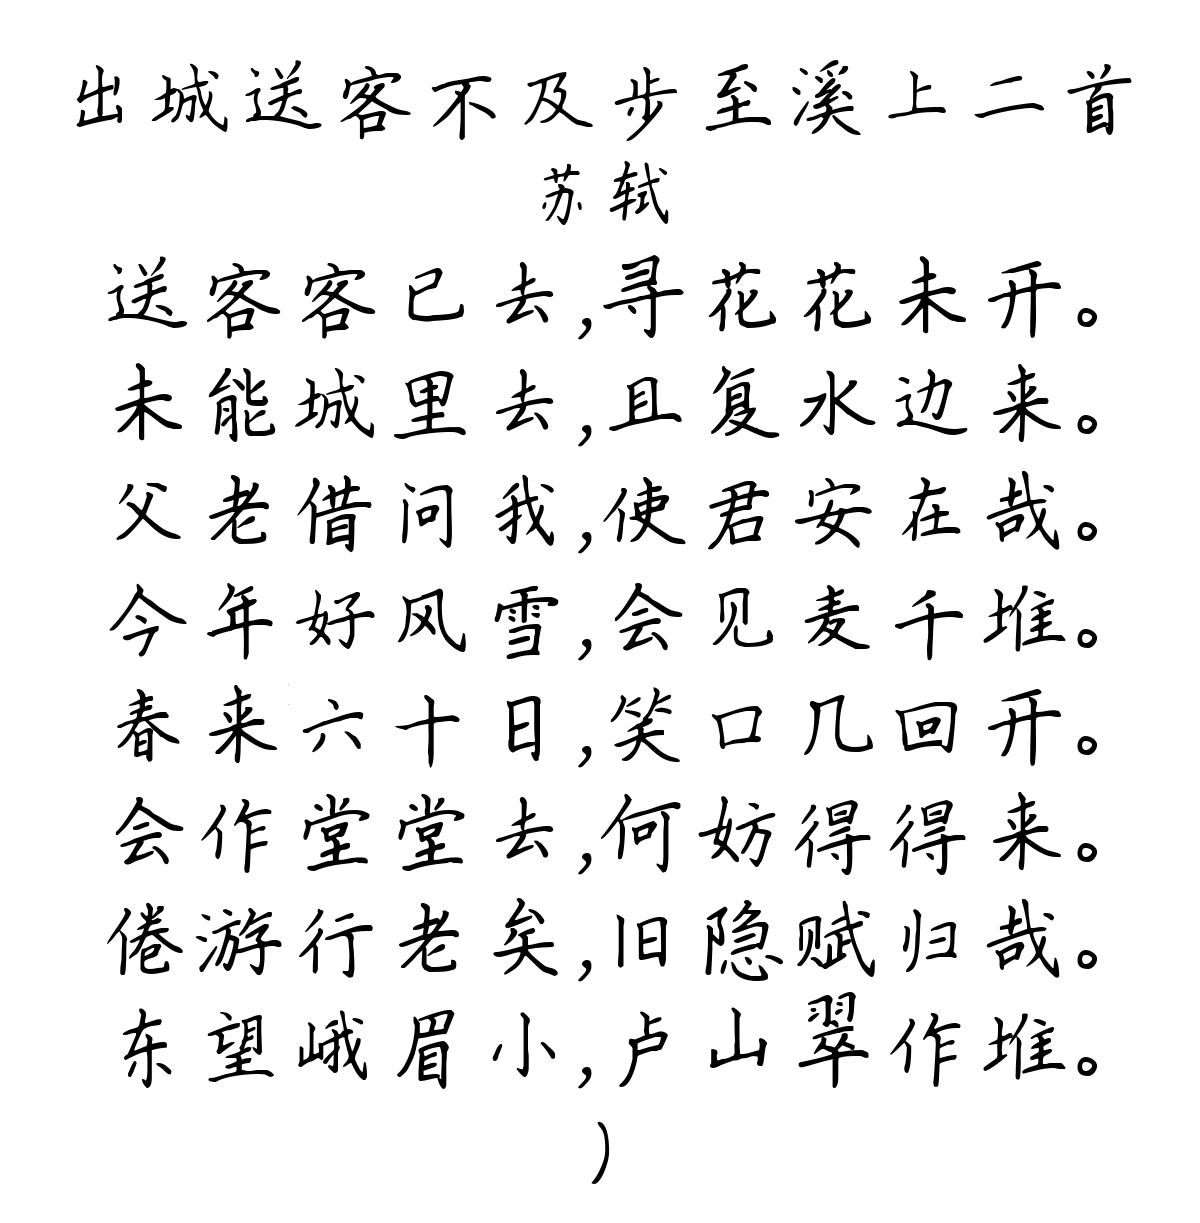 出城送客不及步至溪上二首
苏轼
送客客已去,寻花花未开。
未能城里去,且复水边来。
父老借问我,使君安在哉。
今年好风雪,会见麦千堆。
春来六十日,笑口几回开。
会作堂堂去,何妨得得来。
倦游行老矣,旧隐赋归哉。
东望峨眉小,卢山翠作堆。
)